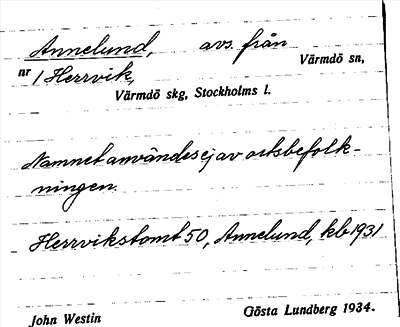 Annelund, avs. från Värmdö sn,
nr 1 Herrvik,
Värmdö skg, Stockholms l.
Namnet användes ej av ortsbefolk-
ningen.
Herrvikstomt 50, Annelund, kb 1931
John Westin Gösta Lundberg 1934.